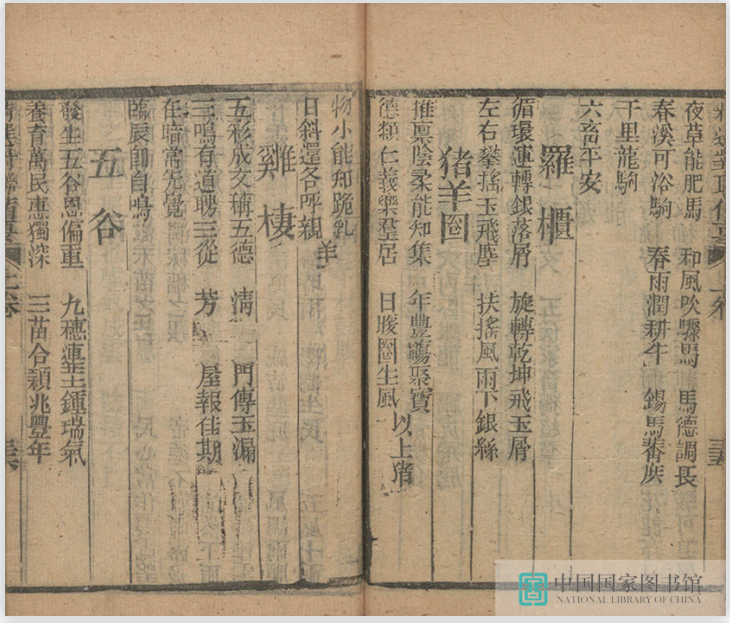 夜草能肥馬 和風吹驟馬 馬德調良
春溪可浴駒 春雨潤耕牛 錫馬蕃庶
千里龍駒
六畜平安
羅櫃
循環運轉銀落屑 旋轉乾坤飛玉屑
左右攀搖玉飛塵 扶搖風雨下銀絲
猪羊圈
推稟陰柔能知集 年豐
聚寶
德類仁義樂羣居 日
圈生風 以上猪
物小能知跪乳
日斜還各呼親 羊
雞棲
五彩成文稱五德 清 門傳玉漏
三鳴有道聘三從 芳 屋報佳期
在暗常先覺
臨辰即自鳴
五谷
發生五谷恩偏重 九穗連莖鍾瑞氣
養育萬民惠獨深 三苗合穎兆豐年
上卷
中国国家图书馆
NATIONAL LIBRARY OF CHINA